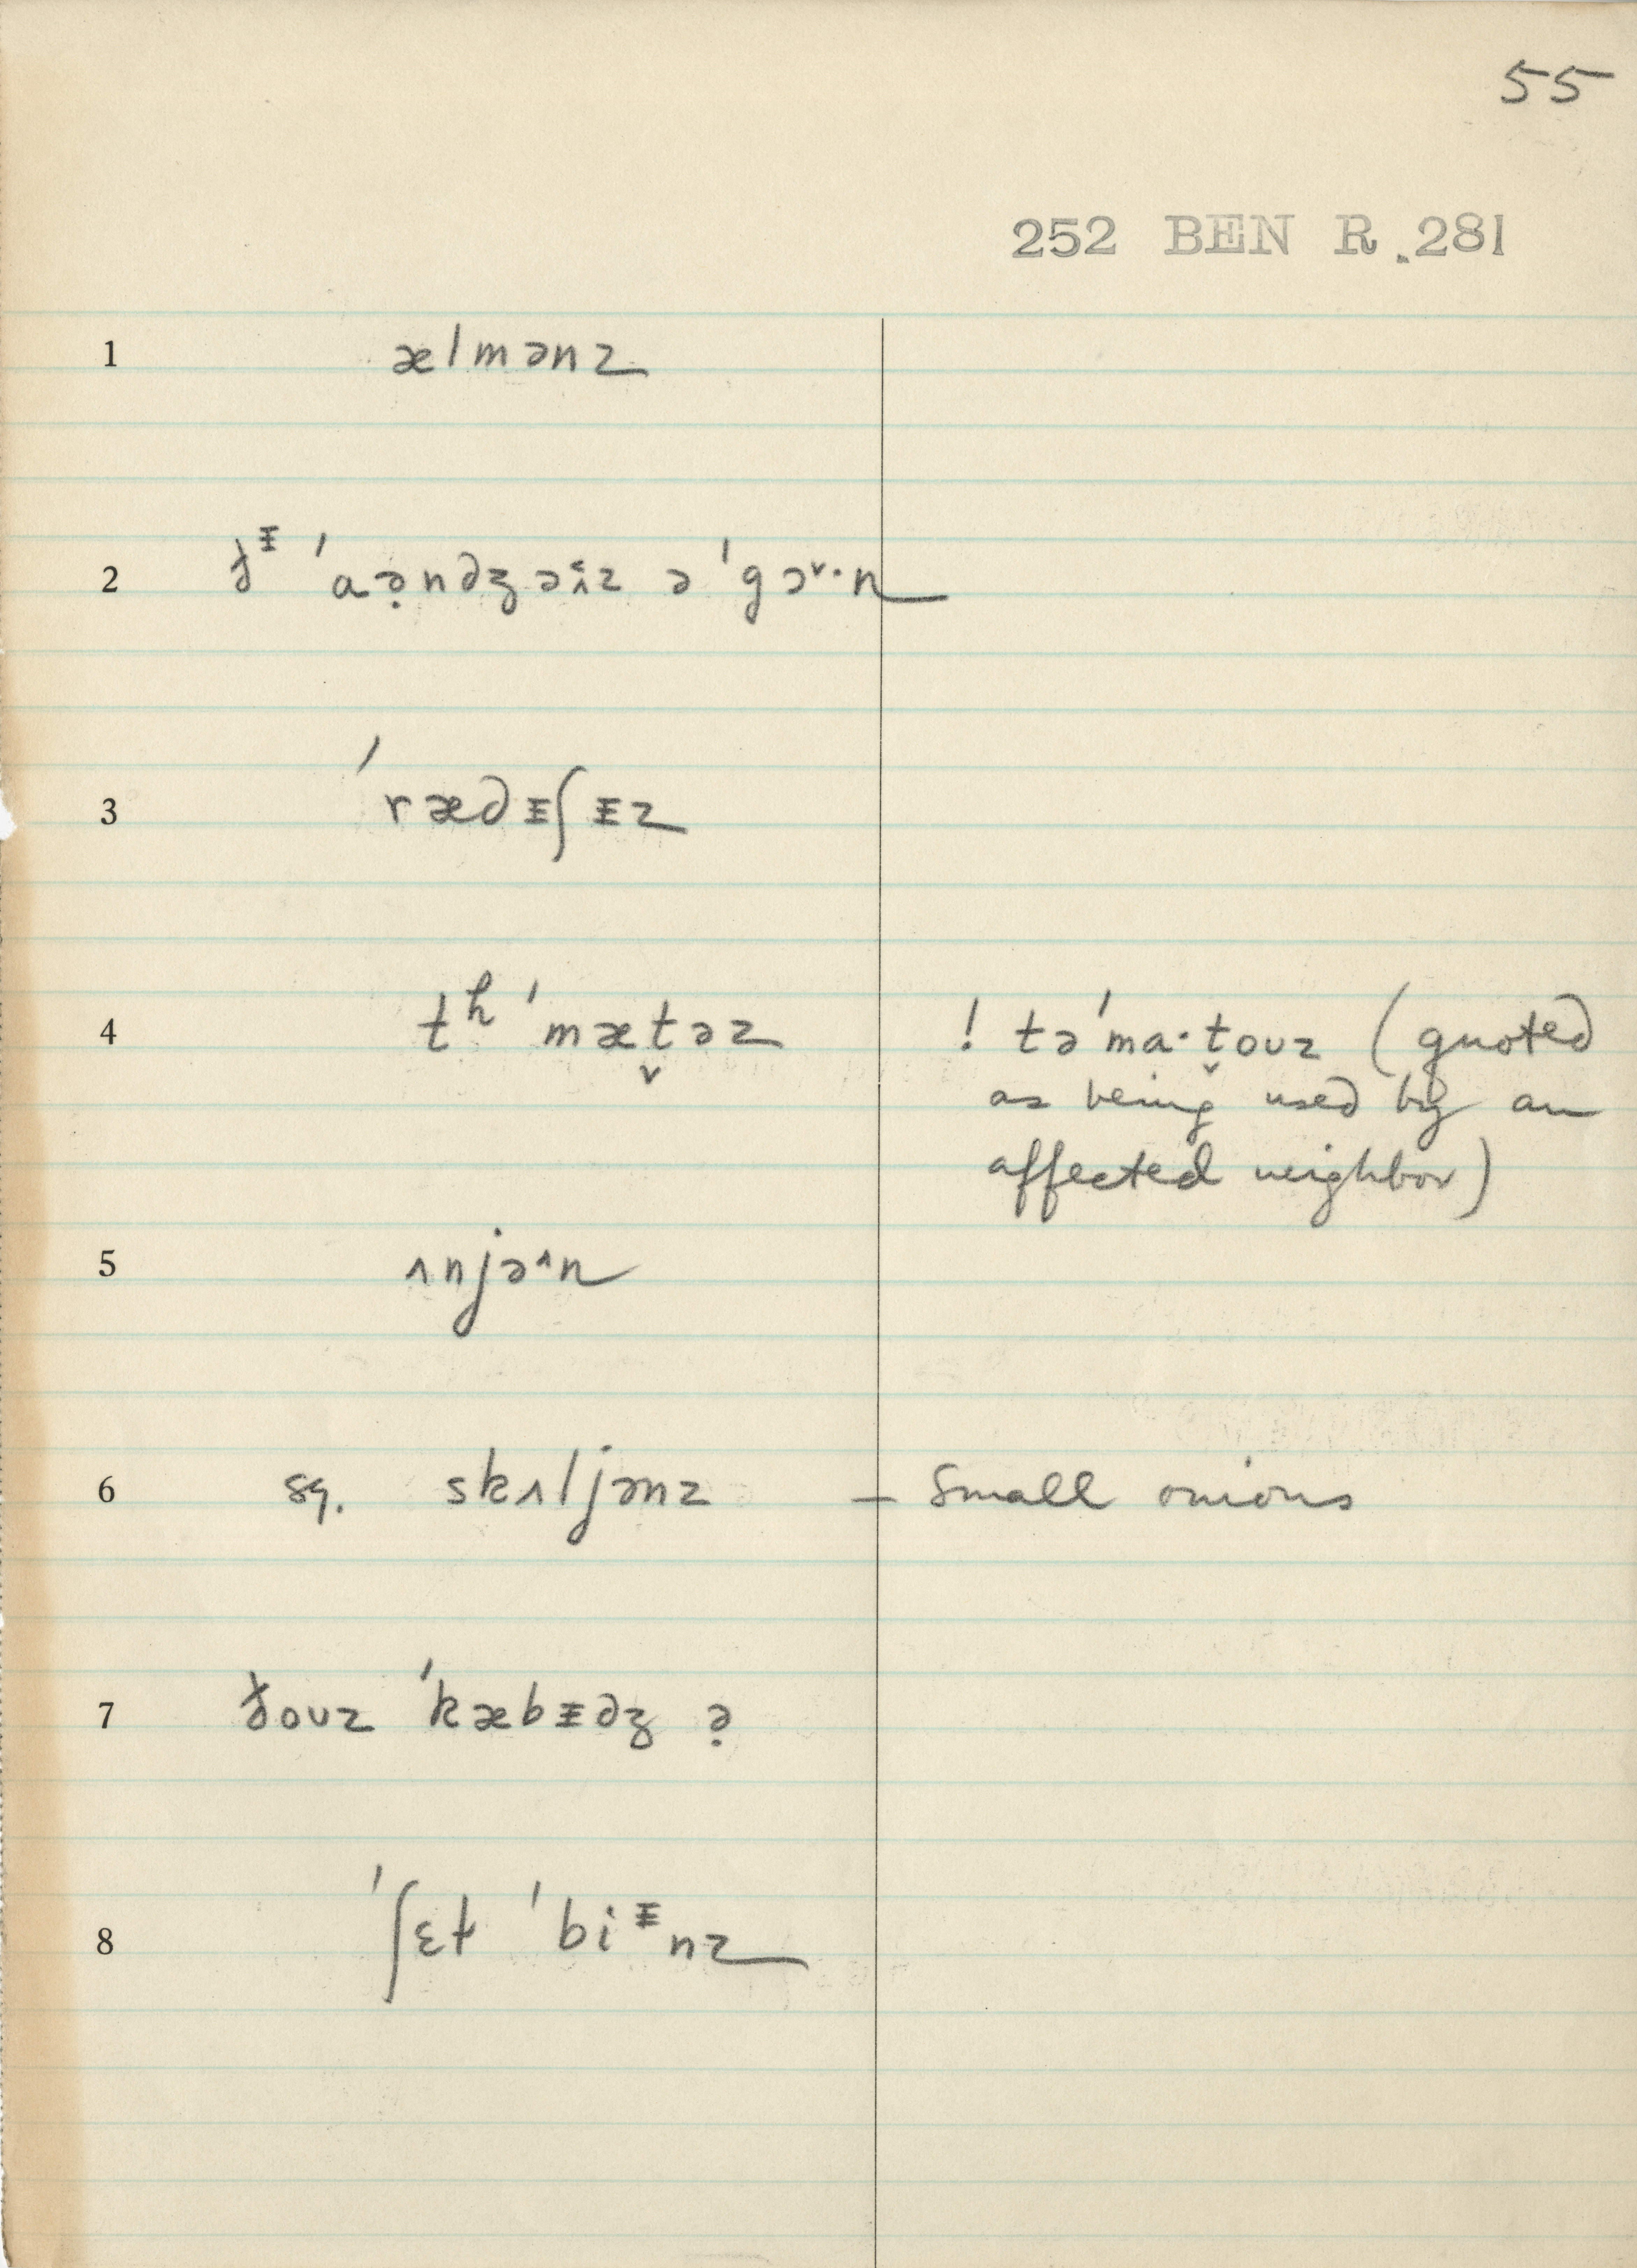 55
252 BEN R. 281
1 ælmənz
2 ðᵻ ˈɑə̣ndʒəɪz ə ˈgɔ˅·n
3 ˈrædᵻʃᵻz
4 tʰ ˈmæt̬əz ! təˈma·t̬ouz (quoted
as being used by an
affected neighbor)
5 ʌnjə^n
6 sg. skʌljənz – small onions
7 ðouz ˈkæbᵻdʒ ə̣
8 ˈʃɛt ˈbiᵻnz